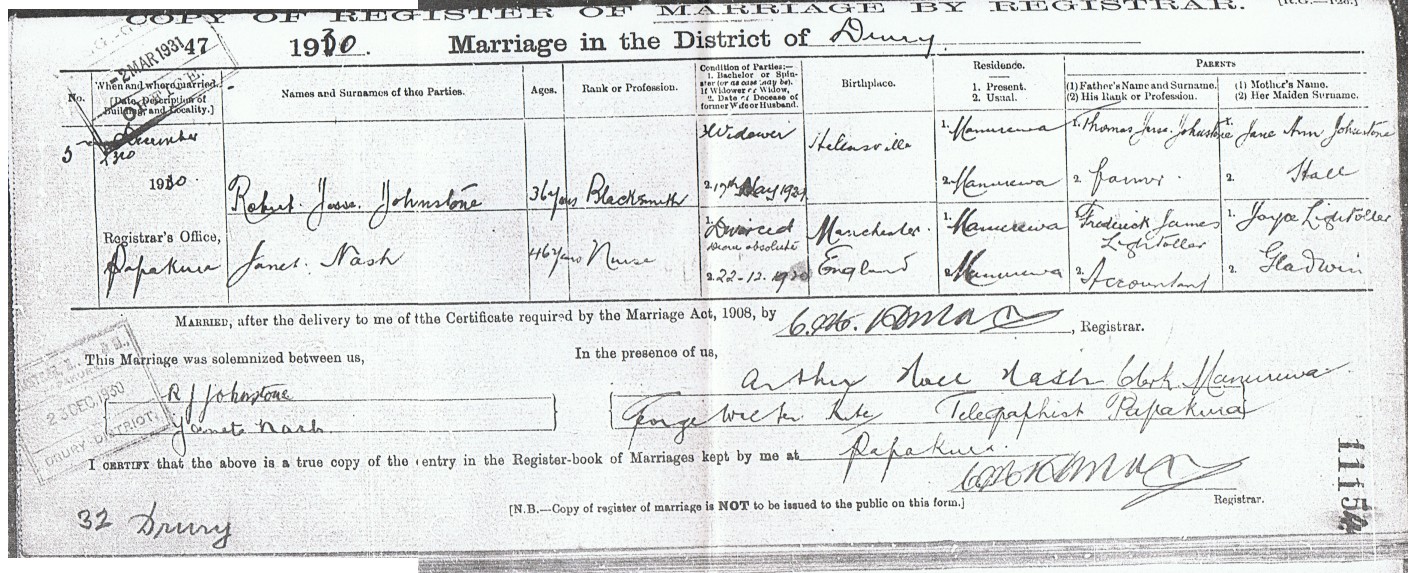 COPY OF REGISTER OF MARRIAGE BY REGISTRAR.
2 MAR 1931
47 1930. Marriage in the District of Drury
No. When and where married. [Date, Description of Building, and Locality.] Names and Surnames of the Parties. Ages. Rank or Profession. Condition of Parties:— 1. Bachelor or Spinster (or as case may be). If Widower or Widow, 2. Date of Decease of former Wife or Husband. Birthplace. Residence. 1. Present. 2. Usual. PARENTS (1) Father's Name and Surname. (2) His Rank or Profession. (1) Mother's Name. (2) Her Maiden Surname.
5 December 1930.
Registrar's Office, Papakura
Robert Jesse Johnstone 36 years Blacksmith Widower 2. 17th May Helensville 1. Manurewa 2. Manurewa 1. Thomas Jesse Johnstone 2. farmer 1. Jane Ann Johnstone 2. Hall
Janet Nash 46 years Nurse 1. Divorced Decree absolute 2. 22-12-1920 Manchester England 1. Manurewa 2. Manurewa Frederick James Lightoller 2. Accountant 1. Joyce Lightoller 2. Gladwin
MARRIED, after the delivery to me of tthe Certificate required by the Marriage Act, 1908, by , Registrar.
This Marriage was solemnized between us, In the presence of us,
R J Johnstone
Janet Nash
Arthur Noel Nash Clerk Manurewa
George Telegraphist Papakura
23 DEC 1930
DRURY DISTRICT.
I CERTIFY that the above is a true copy of the entry in the Register-book of Marriages kept by me at Papakura
Registrar.
[N.B.—Copy of register of marriage is NOT to be issued to the public on this form.]
32 Drury